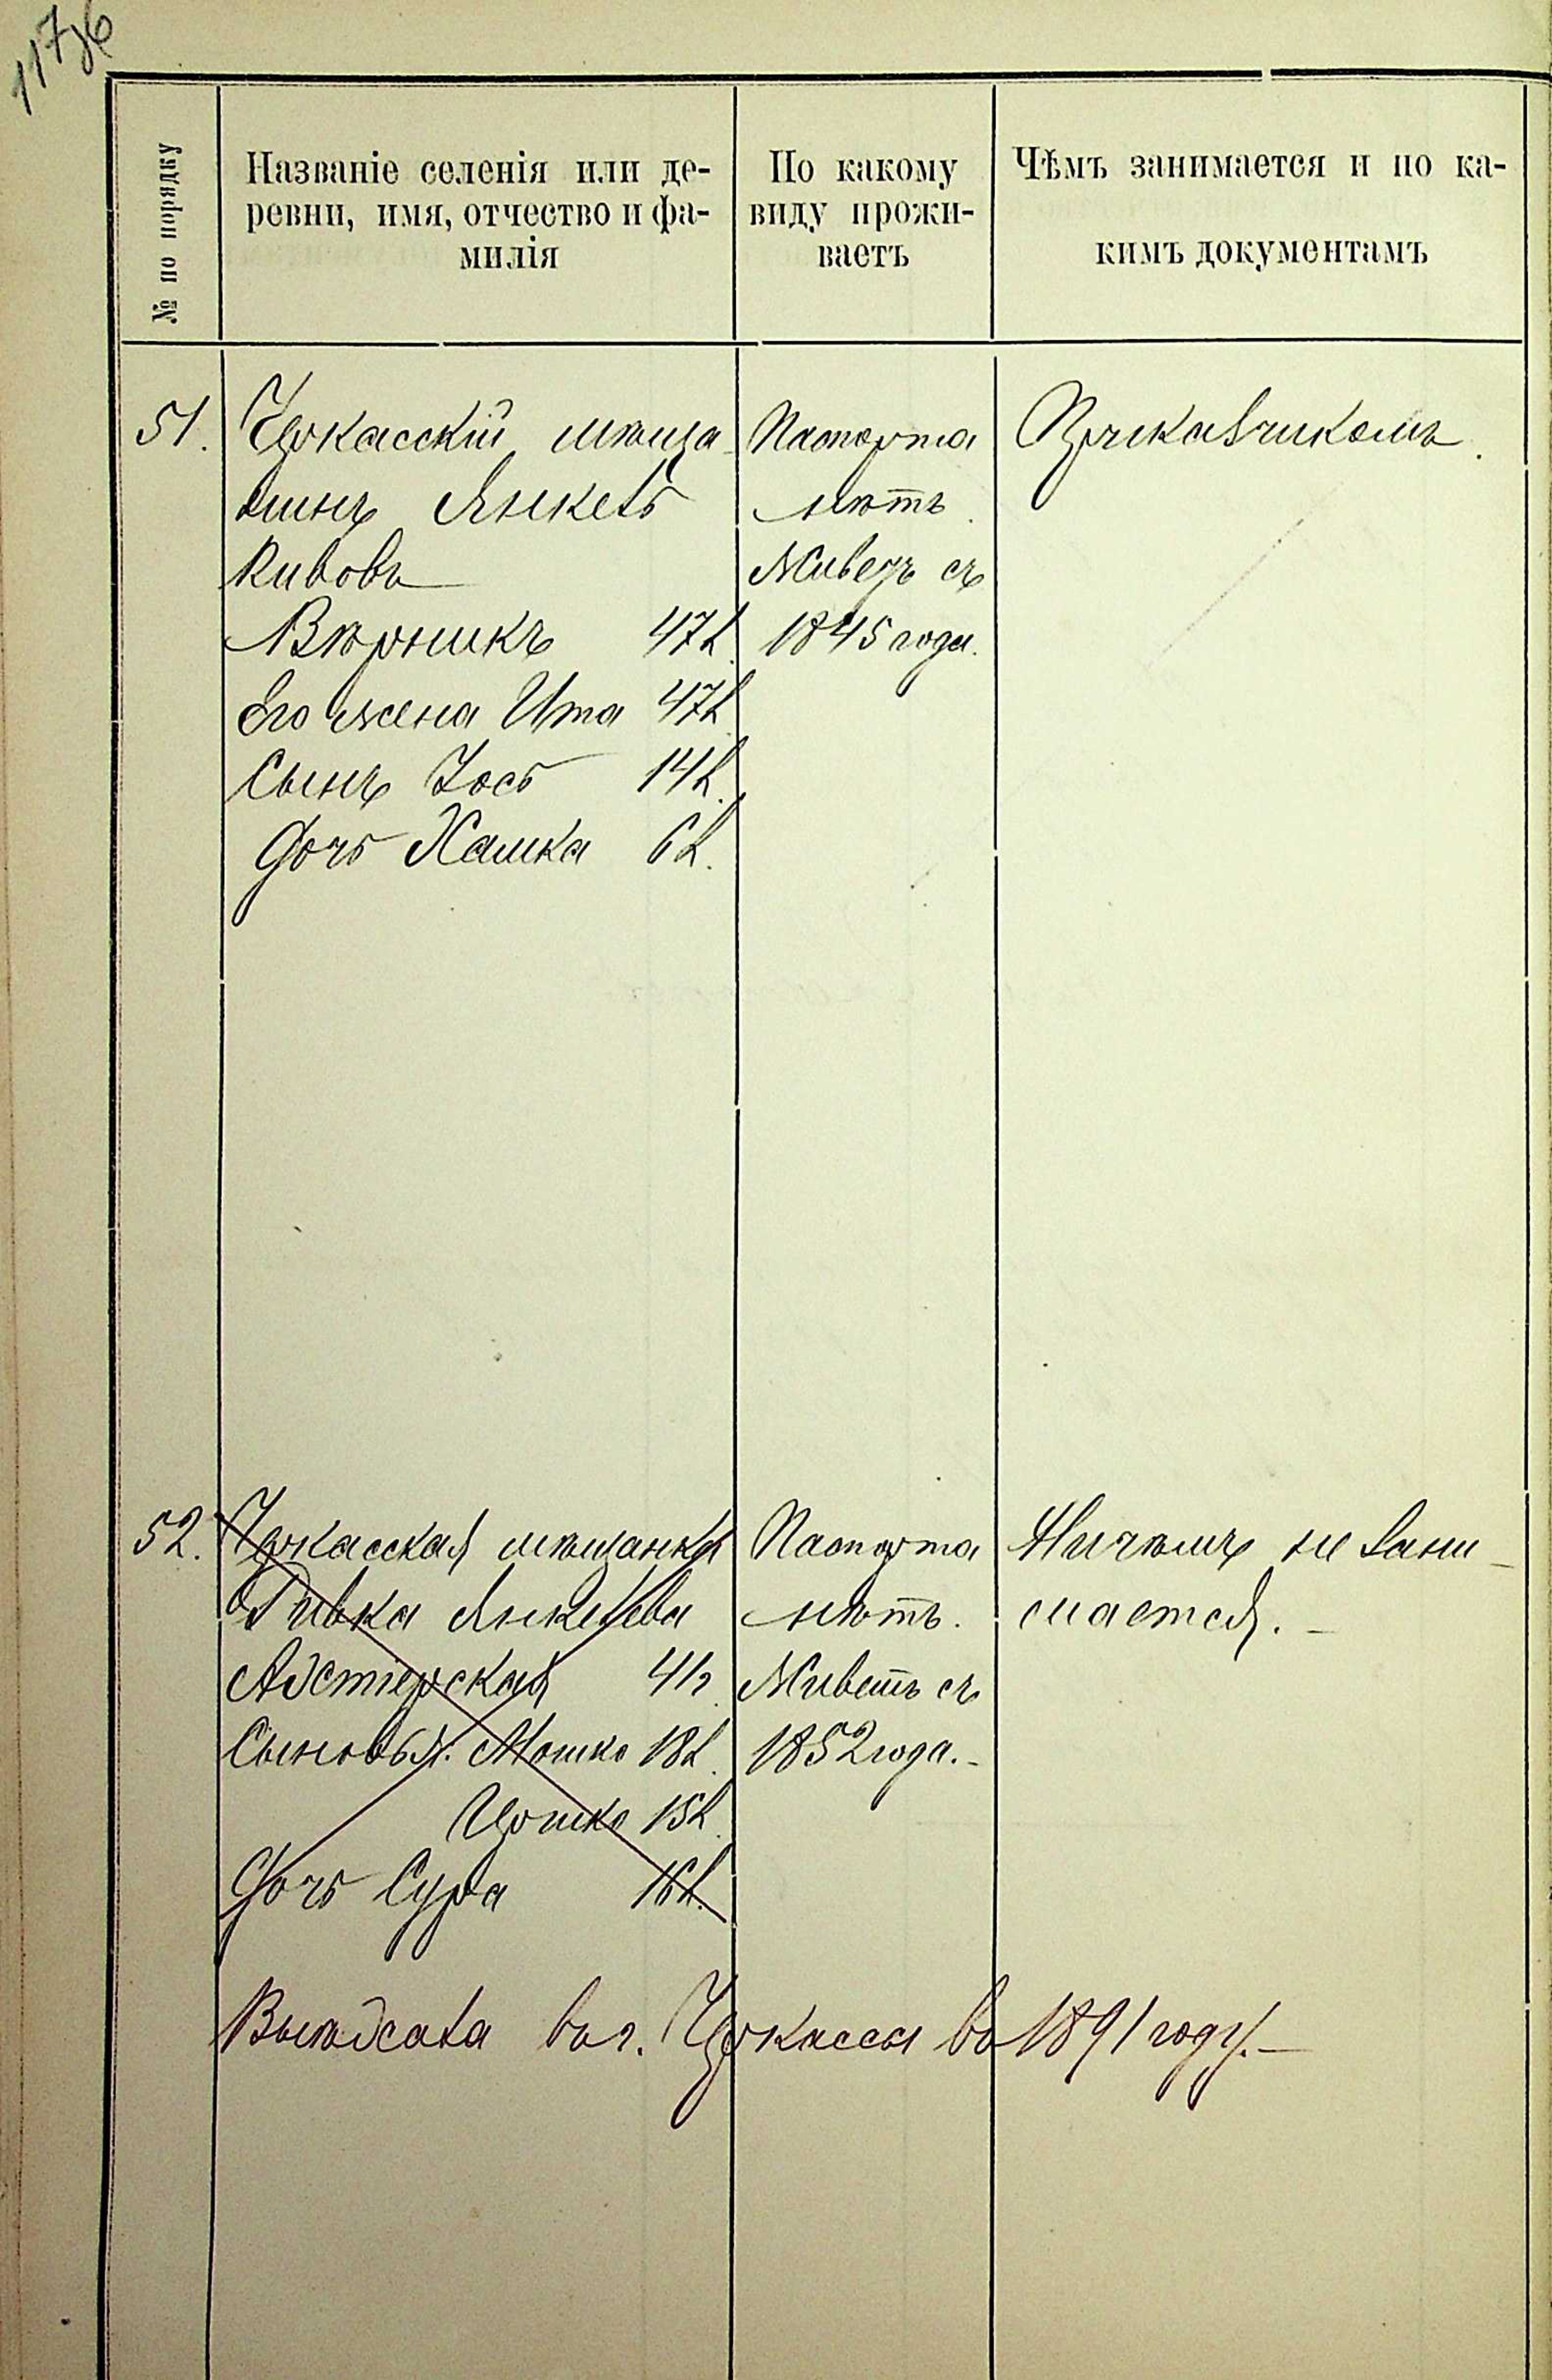 117об
№ по порядку
Названіе селенія или де-
ревни, имя, отчество и фа-
милія
По какому
виду прожи-
ваетъ
Чѣмъ занимается и по ка-
кимъ документамъ
51.
Черкасскій мѣща-
нинъ Янкель
Кивовъ
Вѣрникъ 47 л.
Его жена Ита 47 л.
Сынъ Іось 14 л.
Дочь Хашка 6 л.
Паспорта
нѣтъ.
Живетъ съ
1845 года.
Прикащикомъ.
52.
Черкасская мѣщанка
Ривка Янкелева
41 л.
Сыновья: Мошко 18 л.
Иршко 15 л.
Дочь Сура 16 л.
Паспорта
нѣтъ.
Живетъ съ
1852 года.-
Ничѣмъ не зани-
мается.-
Выѣхала въ г. Черкассы въ 1891 году.-